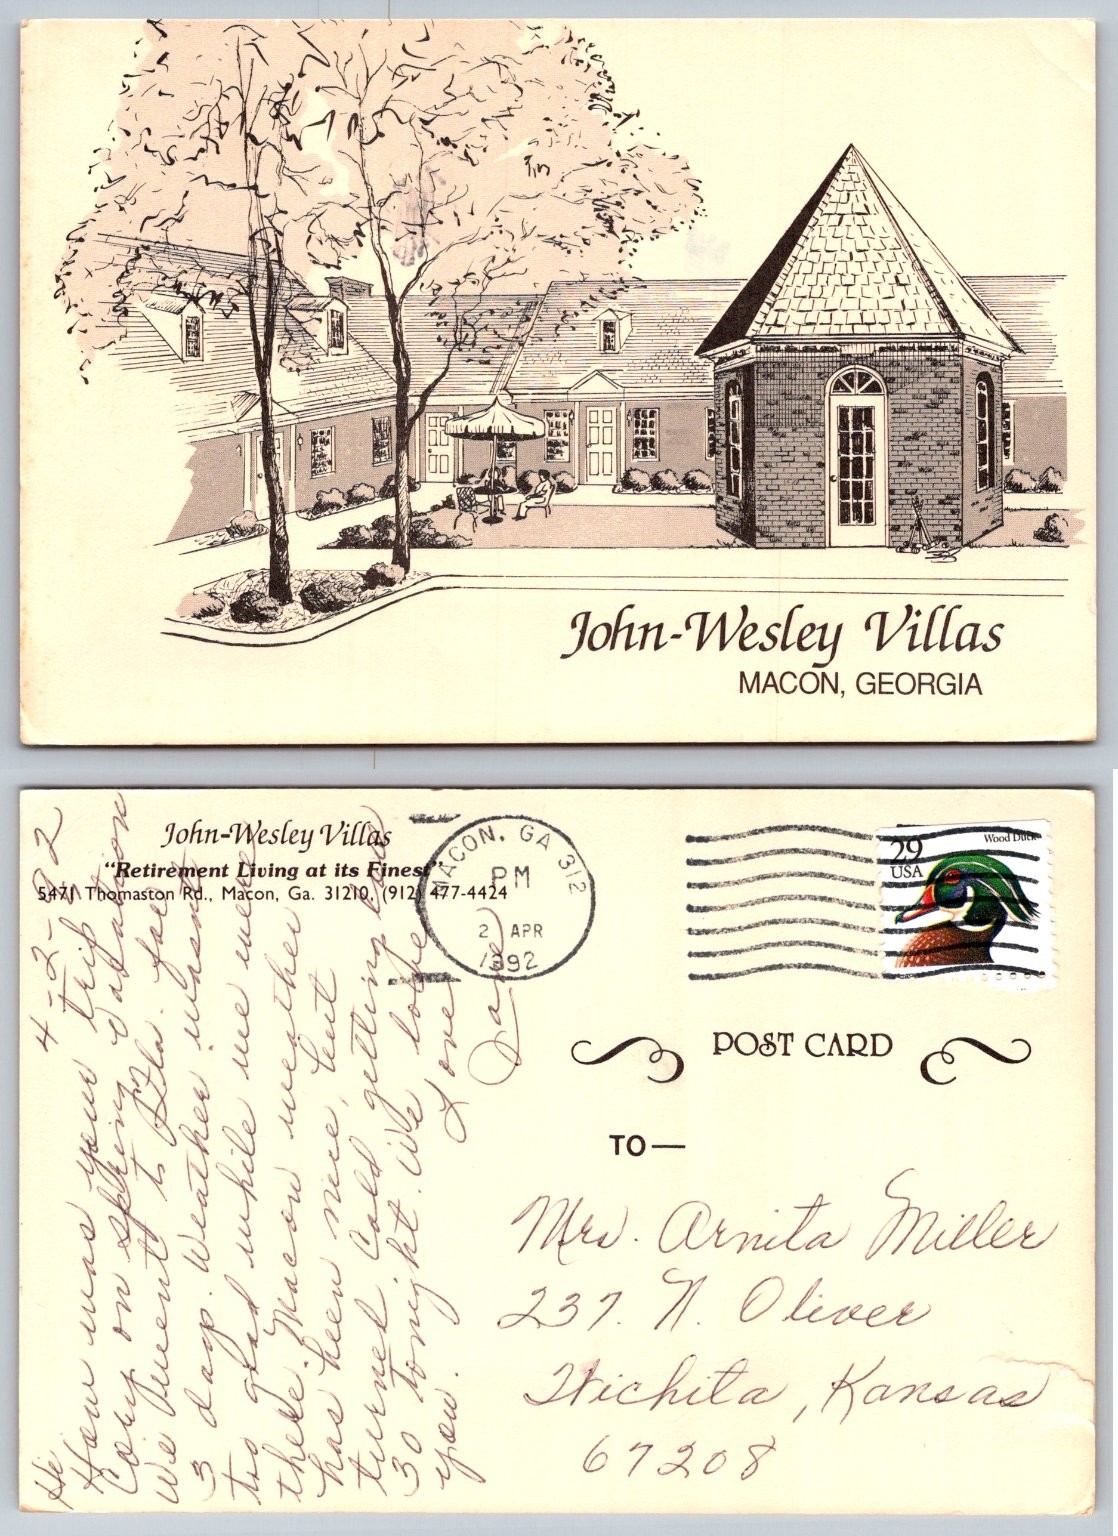 John-Wesley Villas
MACON, GEORGIA
John-Wesley Villas
"Retirement Living at its Finest"
5471 Thomaston Rd., Macon, Ga. 31210, (912) 477-4424
MACON, GA 312
PM
2 APR
1992
29
USA
Wood Duck
POST CARD
TO—
Mrs. Arnita Miller
237 N. Oliver
Wichita, Kansas
67208
4-2-92
Hi
How was your trip
Cory on spring vacation
We went to Fla. for
3 days. Weather wasn't
too good while we were
there. Macon weather
has been nice, but
turned cold getting low
30 tonight. We love
you.
Love
Jane